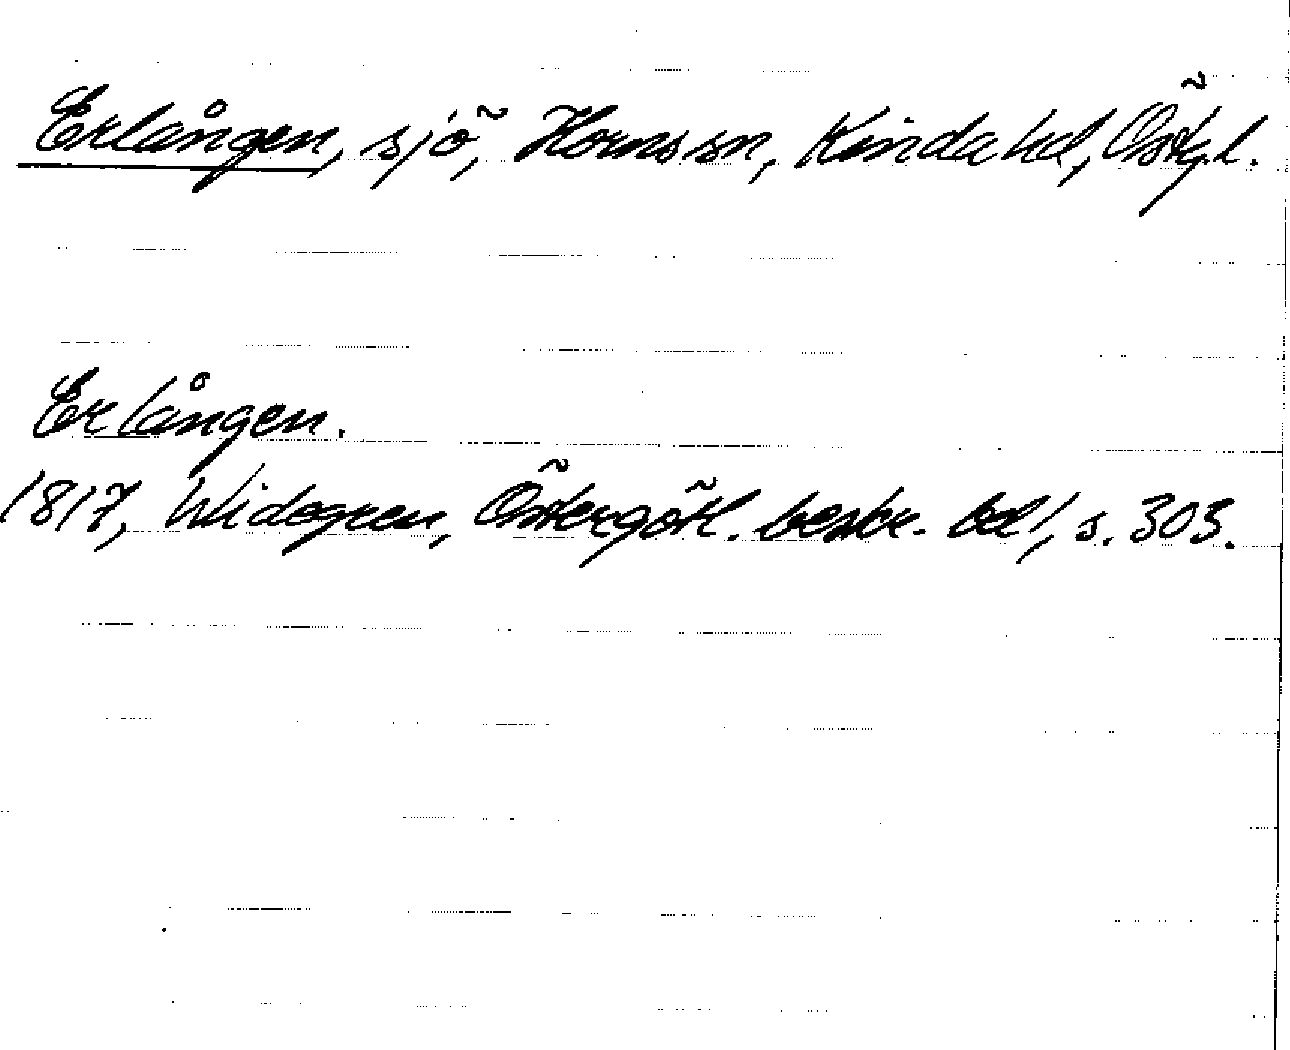 Erlången, sjö, Horns sn, Kinda hd, Östg.l.
Erlången.
1817, Widegren, Östergötl. beskr. bd 1, s. 303.